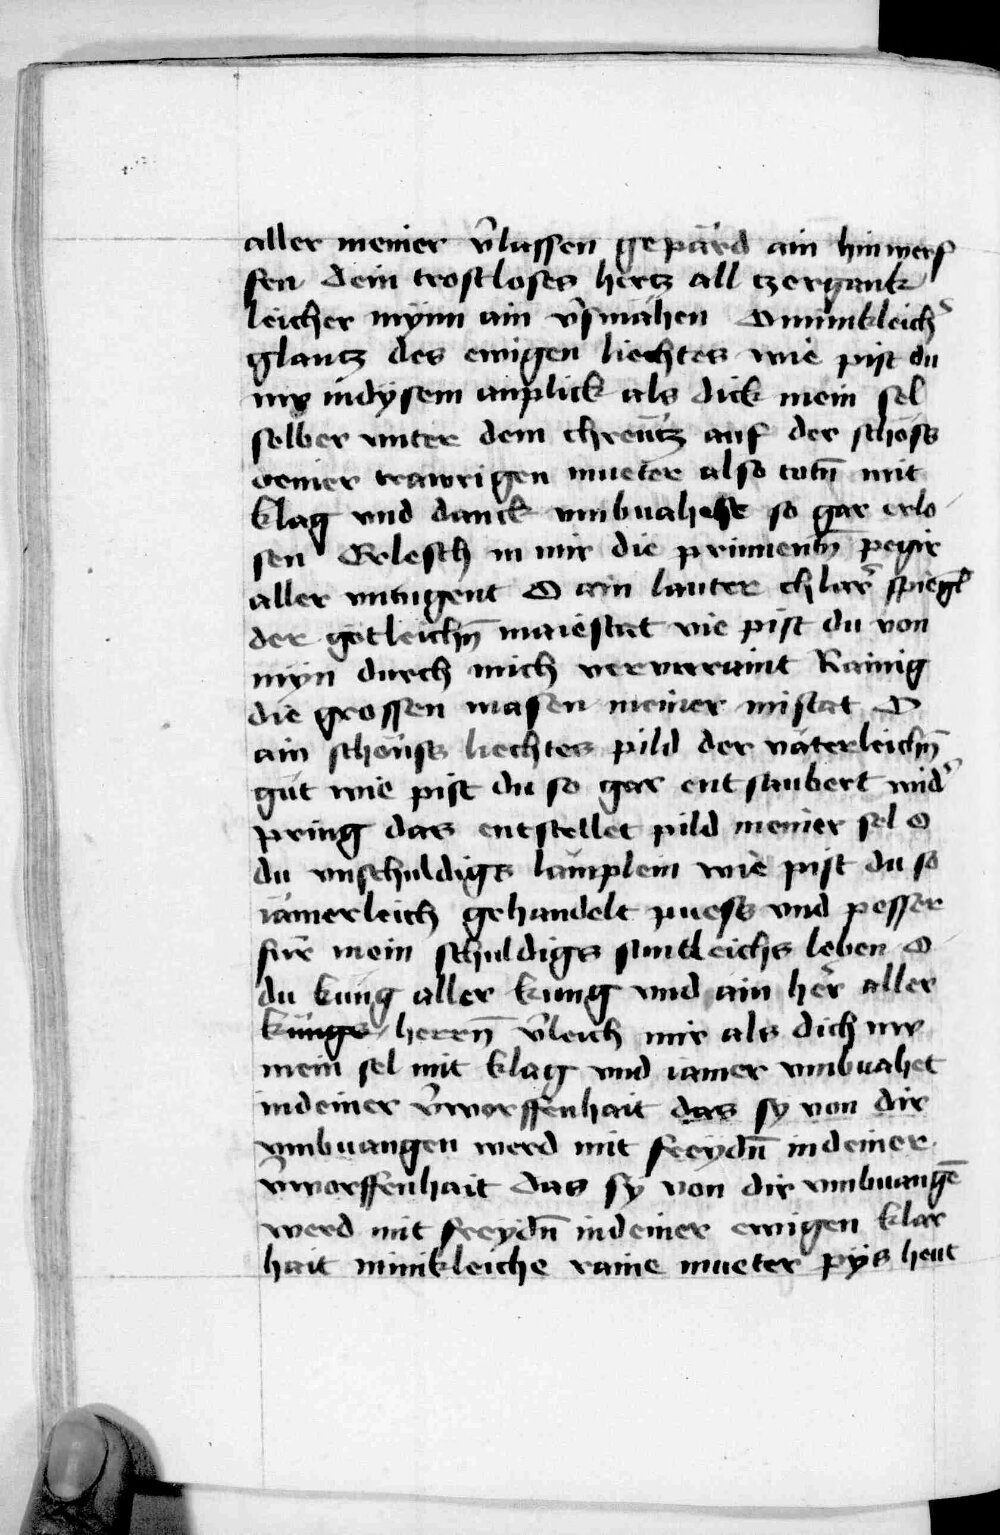 aller meiner v̄lassen gepärd ain hinwerf
fen dein trostloses hertz all tzergank
leicher mÿnn ain v̄smähen O minikleich̄
glantz des ewigen liechtes wie pist du
nw indysem anplick als dick mein sel
selber vnter dem chreütz auf der schoss
deiner trawrigen mueter also totn̄ mit
klag vnd danck vmbuahest so gar erlo
sen Erlesch in mir die prinnentn̄ pegir
aller vntugent O ain lauter chlar̄ spiegl̄
der götleichn̄ maiestat wie pist du von
mÿn durch mich verunraint Rainig
die grossen masen meiner mistat O
ain schöns liechtes pild der väterleichn̄
güt wie pist du so gar entsaubert wid̄
pring das entstellet pild meiner sel O
du vnschuldigs lämplein wie pist du so
iämerleich gehandelt puess vnd pesser
für mein schuldigs suntleichs leben O
du küng aller küng vnd ain her̄ aller
küngs herrn̄ v̄leich mir als dich nw
mein sel mit klag vnd iamer vmbuahet
indeiner v̄worffenhait das sy von dir
vmbuangen werd mit freydn̄ indeiner
v̄worffenhait das sy von dir vmbuangē
werd mit freydn̄ indeiner ewigen klar
hait minikleiche raine mueter pÿs heut